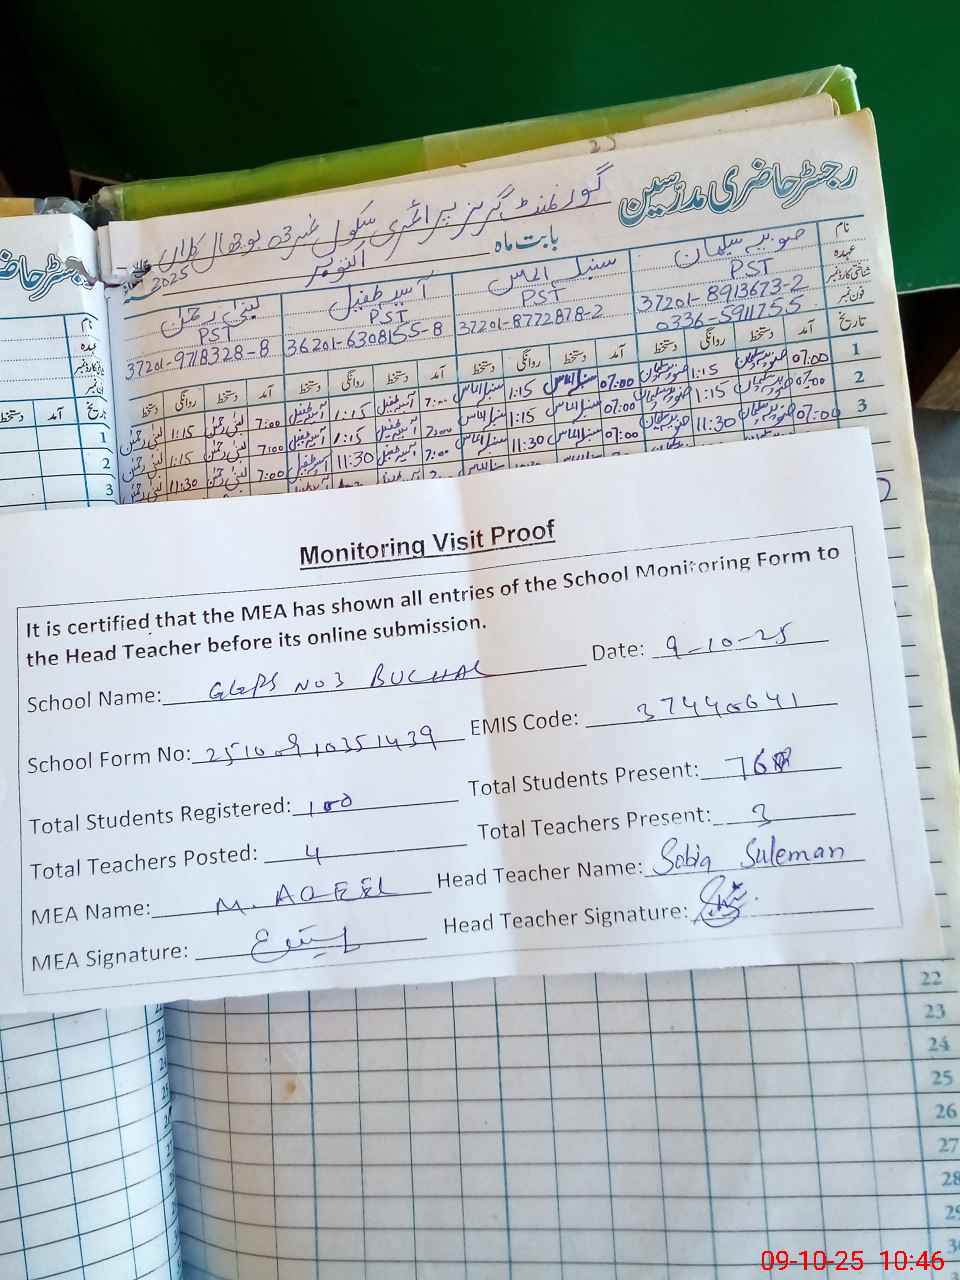 رجسٹر حاضری مدرسین
گورنمنٹ گرلز پرائمری سکول نمبر 03 بوچھال کلاں
بابت ماہ اکتوبر 2025
نام صوبیہ سلمان سنبل الماس آسیہ طفیل لبنیٰ رحمٰن
عہدہ PST PST PST PST
شناختی کارڈ نمبر 37201-8913673-2 37201-8772878-2 36201-6308155-8 37201-9718328-8
فون نمبر 0336-5911755
تاریخ آمد دستخط روانگی دستخط آمد دستخط روانگی دستخط آمد دستخط روانگی دستخط آمد دستخط روانگی دستخط
1 07:00 صوبیہ سلمان 1:15 صوبیہ سلمان 07:00 سنبل الماس 1:15 سنبل الماس 7:00 آسیہ طفیل 1:15 آسیہ طفیل 7:00 لبنیٰ رحمٰن 1:15 لبنیٰ رحمٰن
2 07:00 صوبیہ سلمان 1:15 صوبیہ سلمان 07:00 سنبل الماس 1:15 سنبل الماس 7:00 آسیہ طفیل 1:15 آسیہ طفیل 7:00 لبنیٰ رحمٰن 1:15 لبنیٰ رحمٰن
3 07:00 صوبیہ سلمان 11:30 صوبیہ سلمان 07:00 سنبل الماس 11:30 سنبل الماس 7:00 آسیہ طفیل 11:30 آسیہ طفیل 7:00 لبنیٰ رحمٰن 11:30 لبنیٰ رحمٰن
نام
عہدہ
تاریخ آمد دستخط
1
2
3
Monitoring Visit Proof
It is certified that the MEA has shown all entries of the School Monitoring Form to
the Head Teacher before its online submission.
School Name: GGPS NO 3 BUCHAL Date: 9-10-25
School Form No: 25100910351439 EMIS Code: 37440041
Total Students Registered: 100 Total Students Present: 76
Total Teachers Posted: 4 Total Teachers Present: 3
MEA Name: M. AQEEL Head Teacher Name: Sobia Suleman
MEA Signature: Head Teacher Signature:
22
23
24
25
26
27
28
09-10-25 10:46